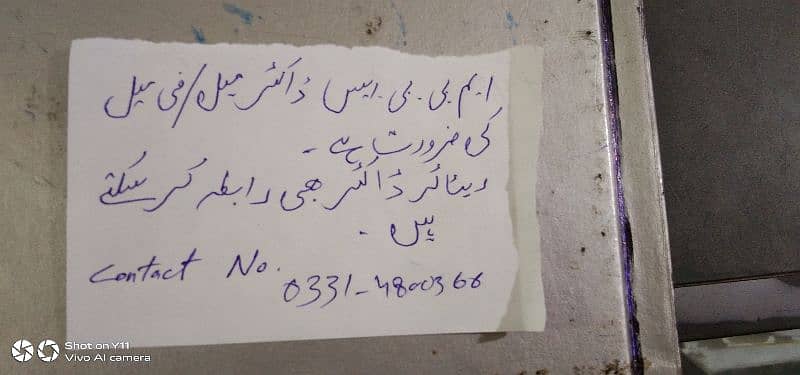 ایم بی بی ایس ڈاکٹر میل/فی میل
کی ضرورت ہے۔
ریٹائر ڈاکٹر بھی رابطہ کر سکتے
ہیں۔
Contact No.
0331-4800366
Shot on Y11
Vivo AI camera